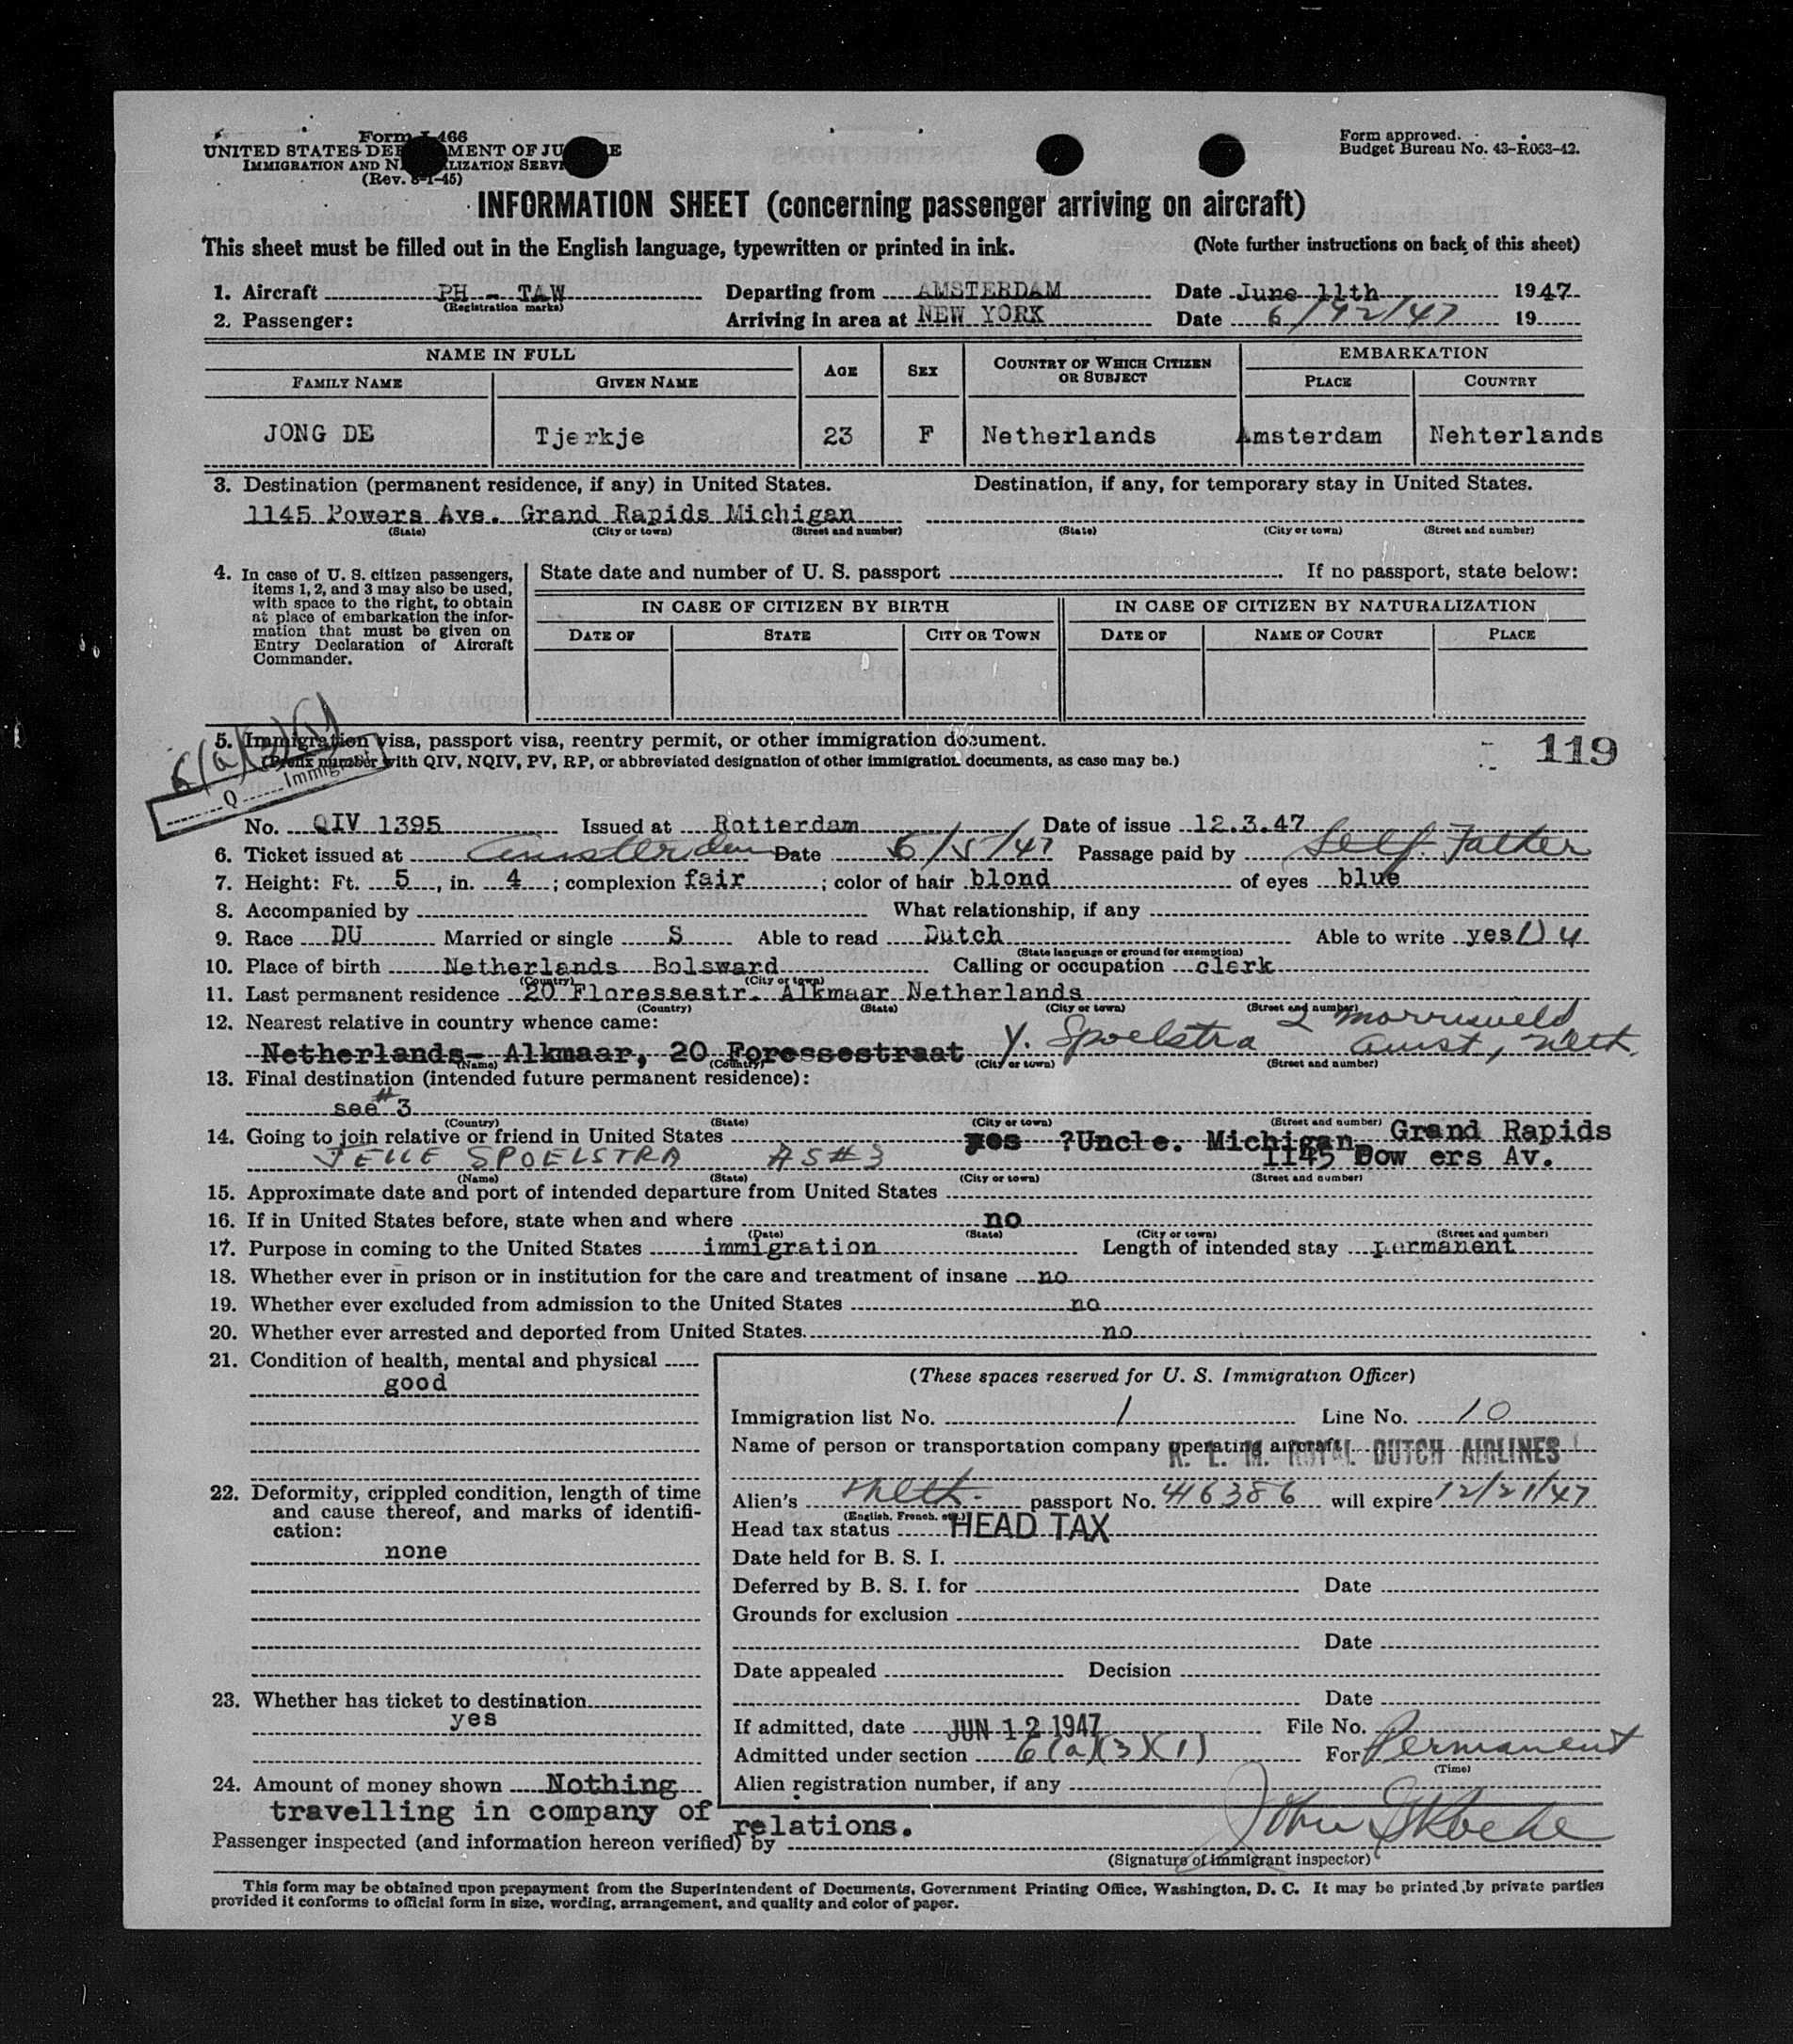 Form I-466
UNITED STATES DEPARTMENT OF JUSTICE
IMMIGRATION AND NATURALIZATION SERVICE
(Rev. 8-1-45)
Form approved.
Budget Bureau No. 43-R063-42.
INFORMATION SHEET (concerning passenger arriving on aircraft)
This sheet must be filled out in the English language, typewritten or printed in ink. (Note further instructions on back of this sheet)
1. Aircraft PH - TAW Departing from AMSTERDAM Date June 11th 1947
(Registration marks)
2. Passenger: Arriving in area at NEW YORK Date 6/12/47 19
NAME IN FULL AGE SEX COUNTRY OF WHICH CITIZEN OR SUBJECT EMBARKATION
FAMILY NAME GIVEN NAME PLACE COUNTRY
JONG DE Tjerkje 23 F Netherlands Amsterdam Nehterlands
3. Destination (permanent residence, if any) in United States. Destination, if any, for temporary stay in United States.
1145 Powers Ave. Grand Rapids Michigan
(State) (City or town) (Street and number) (State) (City or town) (Street and number)
4. In case of U. S. citizen passengers, items 1, 2, and 3 may also be used, with space to the right, to obtain at place of embarkation the information that must be given on Entry Declaration of Aircraft Commander.
State date and number of U. S. passport If no passport, state below:
IN CASE OF CITIZEN BY BIRTH IN CASE OF CITIZEN BY NATURALIZATION
DATE OF STATE CITY OR TOWN DATE OF NAME OF COURT PLACE
6(a)(3)(1)
Q Immigrant
5. Immigration visa, passport visa, reentry permit, or other immigration document.
(Prefix number with QIV, NQIV, PV, RP, or abbreviated designation of other immigration documents, as case may be.)
119
No. QIV 1395 Issued at Rotterdam Date of issue 12.3.47
6. Ticket issued at Amsterdam Date 6/5/47 Passage paid by Self. Father
7. Height: Ft. 5, in. 4; complexion fair; color of hair blond of eyes blue
8. Accompanied by What relationship, if any
9. Race DU Married or single S Able to read Dutch Able to write yes Du
(State language or ground for exemption)
10. Place of birth Netherlands Bolsward Calling or occupation clerk
(Country) (City or town)
11. Last permanent residence 20 Floressestr. Alkmaar Netherlands
(Country) (State) (City or town) (Street and number)
12. Nearest relative in country whence came:
Netherlands- Alkmaar, 20 Foressestraat Y. Spoelstra Amst, Neth.
(Name) (Country) (City or town) (Street and number)
13. Final destination (intended future permanent residence):
see #3
(Country) (State) (City or town) (Street and number)
14. Going to join relative or friend in United States yes ?Uncle. Michigan, Grand Rapids
JELLE SPOELSTRA AS #3 1145 Pow ers Av.
(Name) (State) (City or town) (Street and number)
15. Approximate date and port of intended departure from United States
16. If in United States before, state when and where no
(Date) (State) (City or town) (Street and number)
17. Purpose in coming to the United States immigration Length of intended stay permanent
18. Whether ever in prison or in institution for the care and treatment of insane no
19. Whether ever excluded from admission to the United States no
20. Whether ever arrested and deported from United States. no
21. Condition of health, mental and physical
good
22. Deformity, crippled condition, length of time and cause thereof, and marks of identification:
none
23. Whether has ticket to destination
yes
24. Amount of money shown Nothing
travelling in company of relations.
(These spaces reserved for U. S. Immigration Officer)
Immigration list No. 1 Line No. 10
Name of person or transportation company operating aircraft K. L. M. ROYAL DUTCH AIRLINES
Alien's Neth. passport No. 416386 will expire 12/21/47
(English, French, etc.)
Head tax status HEAD TAX
Date held for B. S. I.
Deferred by B. S. I. for Date
Grounds for exclusion
Date
Date appealed Decision
Date
If admitted, date JUN 12 1947 File No.
Admitted under section 6(a)(3)(1) For Permanent
(Time)
Alien registration number, if any
Passenger inspected (and information hereon verified) by John
(Signature of immigrant inspector)
This form may be obtained upon prepayment from the Superintendent of Documents, Government Printing Office, Washington, D. C. It may be printed by private parties
provided it conforms to official form in size, wording, arrangement, and quality and color of paper.